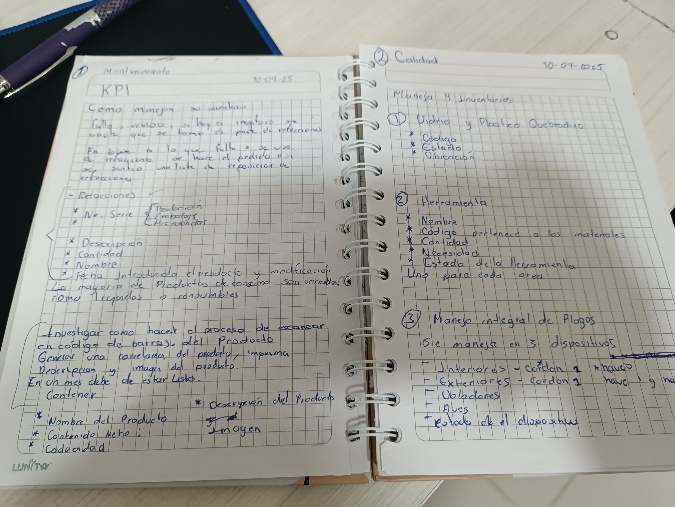 1 Mantenimiento
30-09-25
KPI
Como manejan su inventario
Falta revisar, si hay o
que se toman de parte de refacciones
En base a lo que falta o se usa
se hace el pedido o si
una lista de reposición de
refacciones
- Refacciones
* No. Serie
* Descripción
* Cantidad
* Nombre
* Fecha introducida el producto y modificación
La mayoria de Productos de consumo son
como o consumibles
Investigar como hacer el proceso de escanear
en codigo de barras del Producto
Generar una del producto, imprima
Descripcion y imagen del producto.
En un mes debe de estar listo.
Contener
* Nombre del Producto
* Contenido Neto
* Caducidad
* Descripción del Producto
Imagen
LUNITA
2 Calidad
30-09-2025
Manejo 4 inventarios
1 Vidrio y Plastico Quebradizo
* Código
* Estado
* Ubicación
2 Herramienta
* Nombre
* Código pertenece a los materiales
* Cantidad
* Necesidad
* Estado de la Herramienta
Uno para cada area
3 Manejo integral de Plagas
Se maneja en 3 dispositivos
- Interiores - cordon 1
- Exteriores - cordon 1
- Voladores
- Aves
Estado de el dispositivo